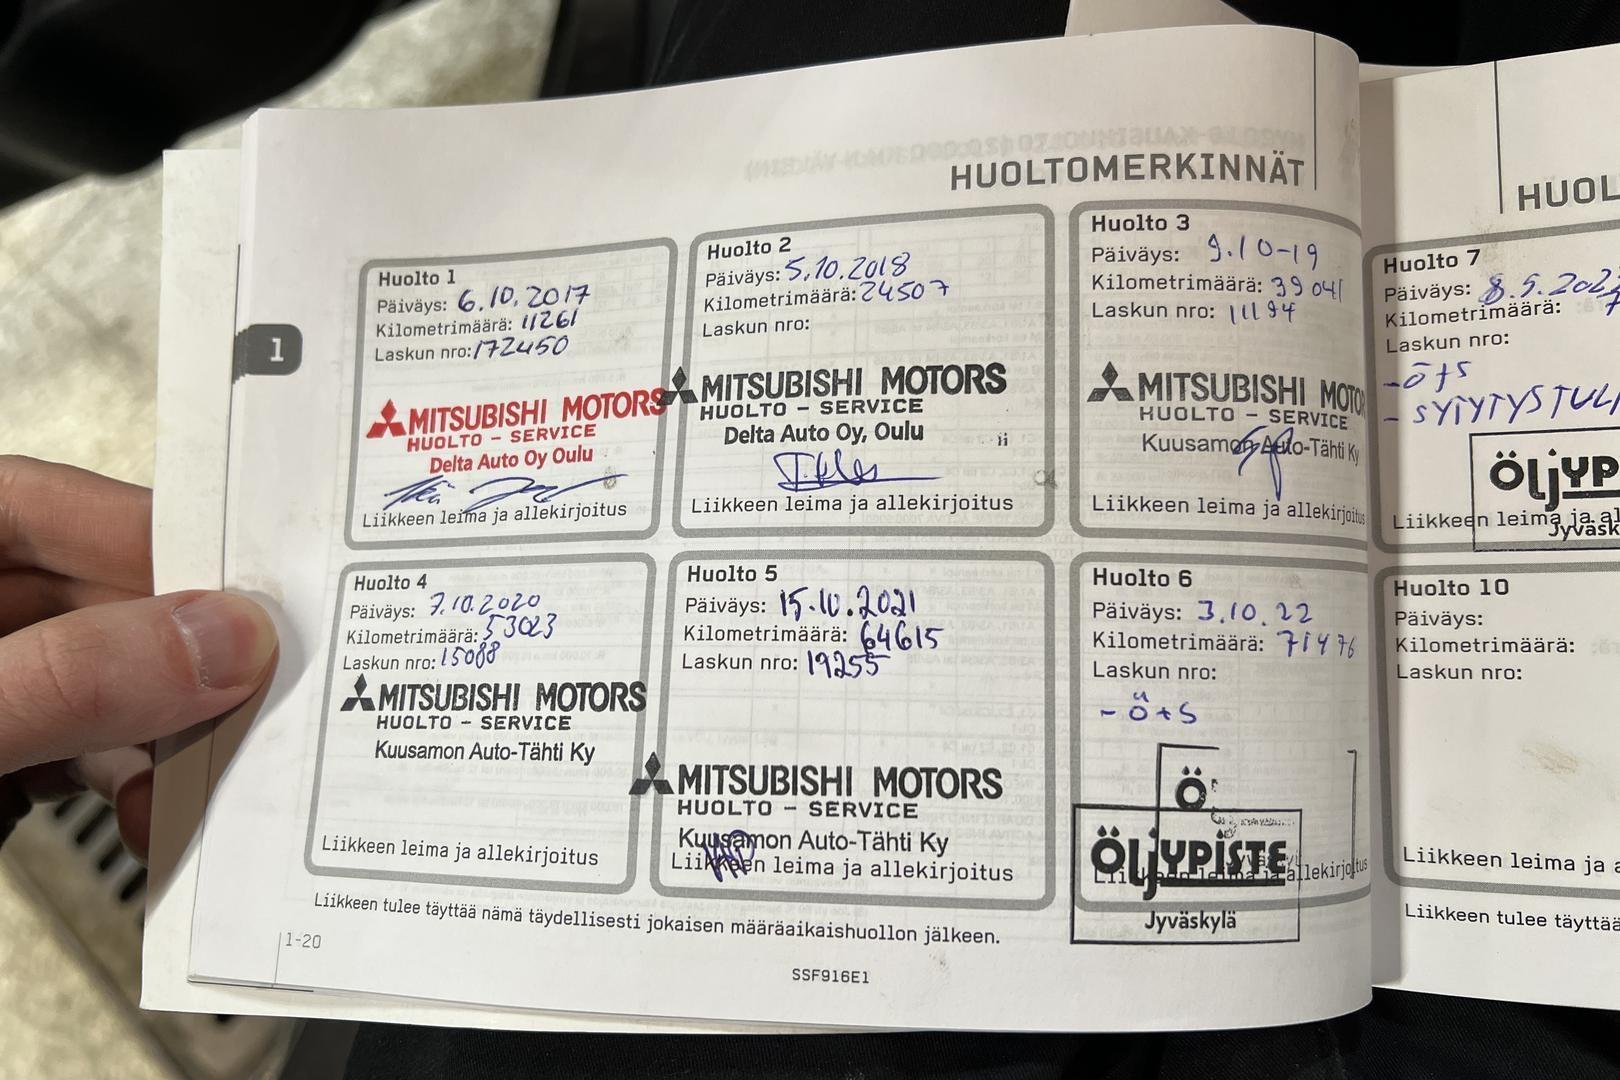 HUOLTOMERKINNÄT
1
Huolto 1
Päiväys: 6.10.2017
Kilometrimäärä: 11261
Laskun nro: 172450
MITSUBISHI MOTORS
HUOLTO - SERVICE
Delta Auto Oy Oulu
Liikkeen leima ja allekirjoitus
Huolto 2
Päiväys: 5.10.2018
Kilometrimäärä: 24507
Laskun nro:
MITSUBISHI MOTORS
HUOLTO - SERVICE
Delta Auto Oy, Oulu
Liikkeen leima ja allekirjoitus
Huolto 3
Päiväys: 9.10-19
Kilometrimäärä: 39041
Laskun nro: 11194
MITSUBISHI MOTOR
HUOLTO - SERVICE
Kuusamon Auto-Tähti Ky
Liikkeen leima ja allekirjoitus
Huolto 4
Päiväys: 7.10.2020
Kilometrimäärä: 53023
Laskun nro: 15088
MITSUBISHI MOTORS
HUOLTO - SERVICE
Kuusamon Auto-Tähti Ky
Liikkeen leima ja allekirjoitus
Huolto 5
Päiväys: 15.10.2021
Kilometrimäärä: 64615
Laskun nro: 19255
MITSUBISHI MOTORS
HUOLTO - SERVICE
Kuusamon Auto-Tähti Ky
Liikkeen leima ja allekirjoitus
Huolto 6
Päiväys: 3.10.22
Kilometrimäärä: 71476
Laskun nro:
- Ö+S
ÖljYPISTE
Liikkeen leima ja allekirjoitus
Jyväskylä
Liikkeen tulee täyttää nämä täydellisesti jokaisen määräaikaishuollon jälkeen.
1-20
SSF916E1
HUOL
Huolto 7
Päiväys: 8.9.202
Kilometrimäärä:
Laskun nro:
- Ö+S
- SYTYTYSTUL
ÖljYP
Liikkeen leima ja al
Jyväsk
Huolto 10
Päiväys:
Kilometrimäärä:
Laskun nro:
Liikkeen leima ja a
Liikkeen tulee täyttää